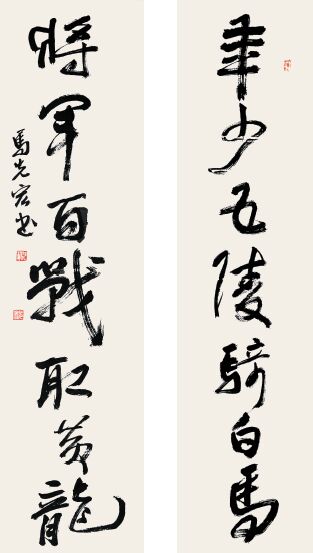 年少五陵騎白馬
將軍百戰取黃龍
馬先宏书